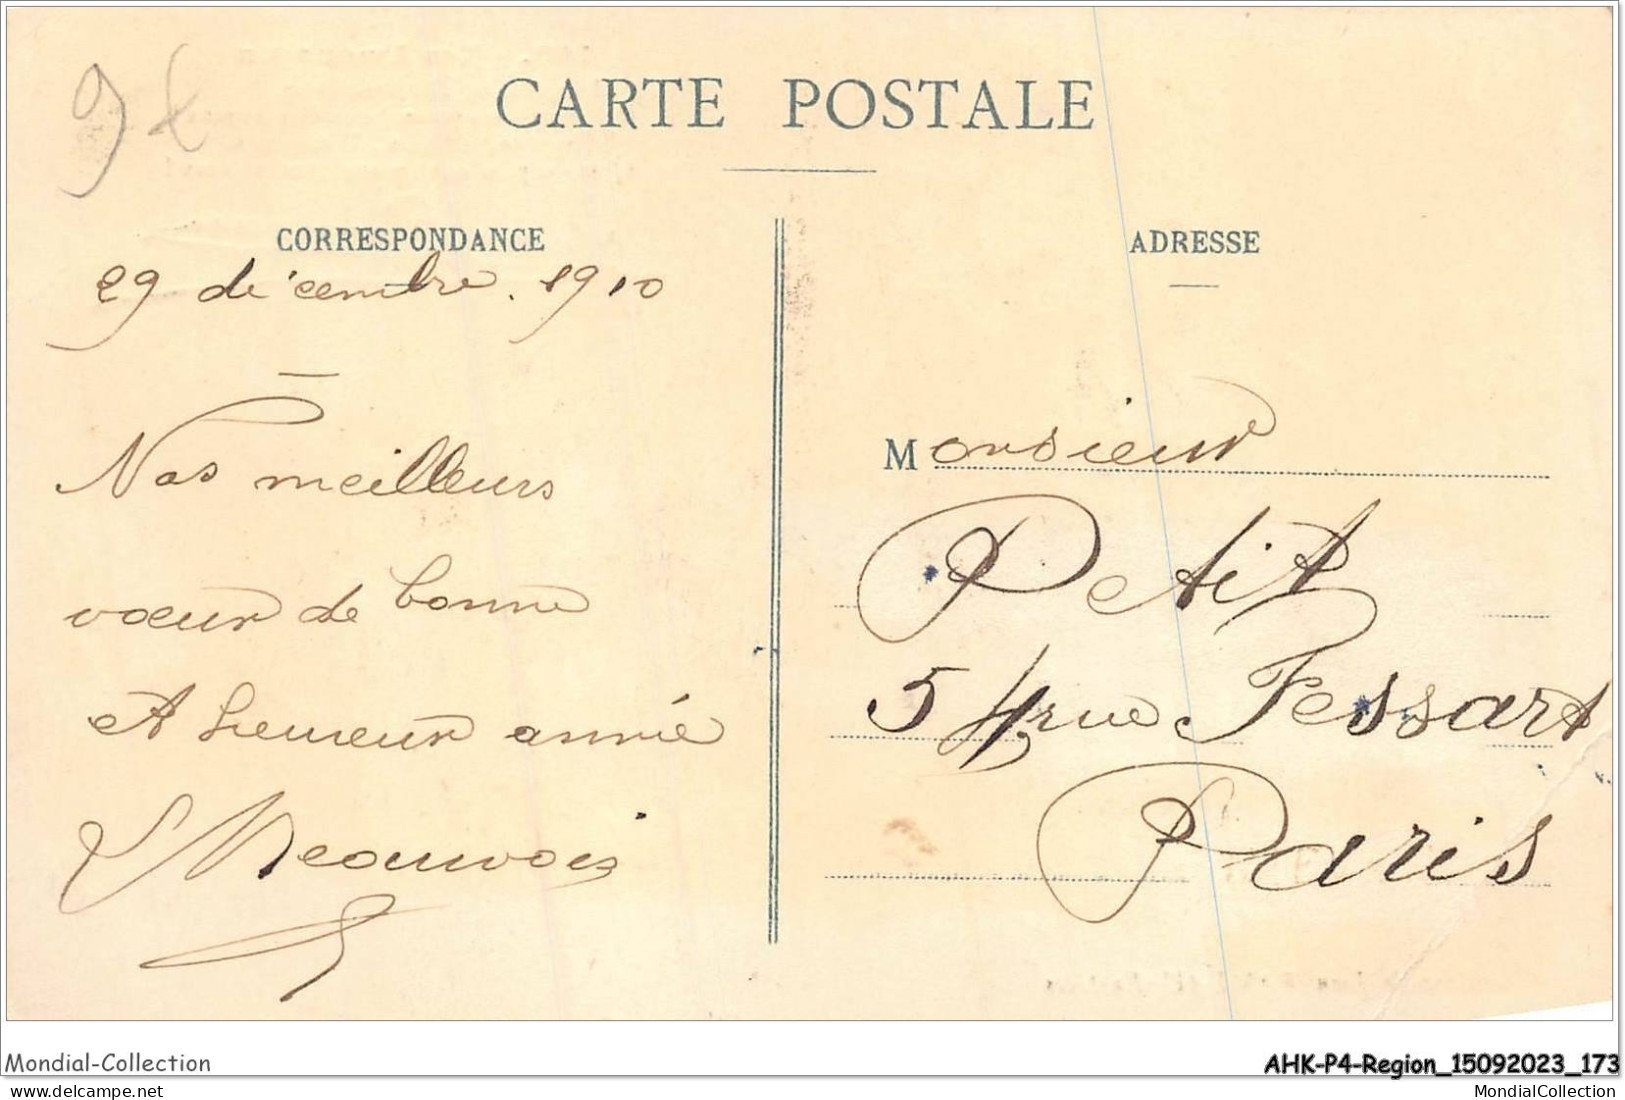 CARTE POSTALE
CORRESPONDANCE
29 décembre. 1910
Nos meilleurs
voeux de bonne
et heureux année
ADRESSE
Monsieur
Petit
54 rue Fessart
Paris
Mondial-Collection
AHK-P4-Region_15092023_173
delcampe.net
MondialCollection